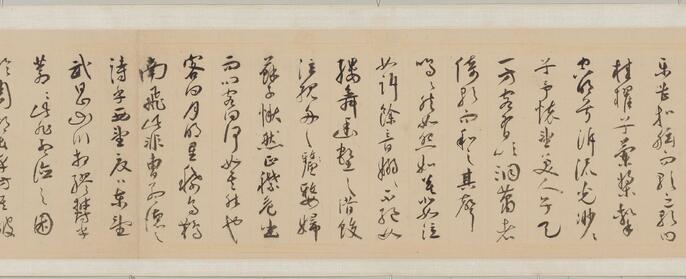 樂甚扣舷而歌之歌曰
桂櫂兮蘭槳擊
空明兮泝流光渺渺
兮予懷望美人兮天
一方客有吹洞簫者
倚歌而和之其聲
嗚嗚然如怨如慕如泣
如訴餘音嫋嫋不絕如
縷舞幽壑之潛蛟
泣孤舟之嫠婦
蘇子愀然正襟危坐
而問客曰何為其然也
客曰月明星稀烏鵲
南飛此非曹孟德之
詩乎西望夏口東望
武昌山川相繆鬱乎
蒼蒼此非孟德之困
於周郎者乎方其破